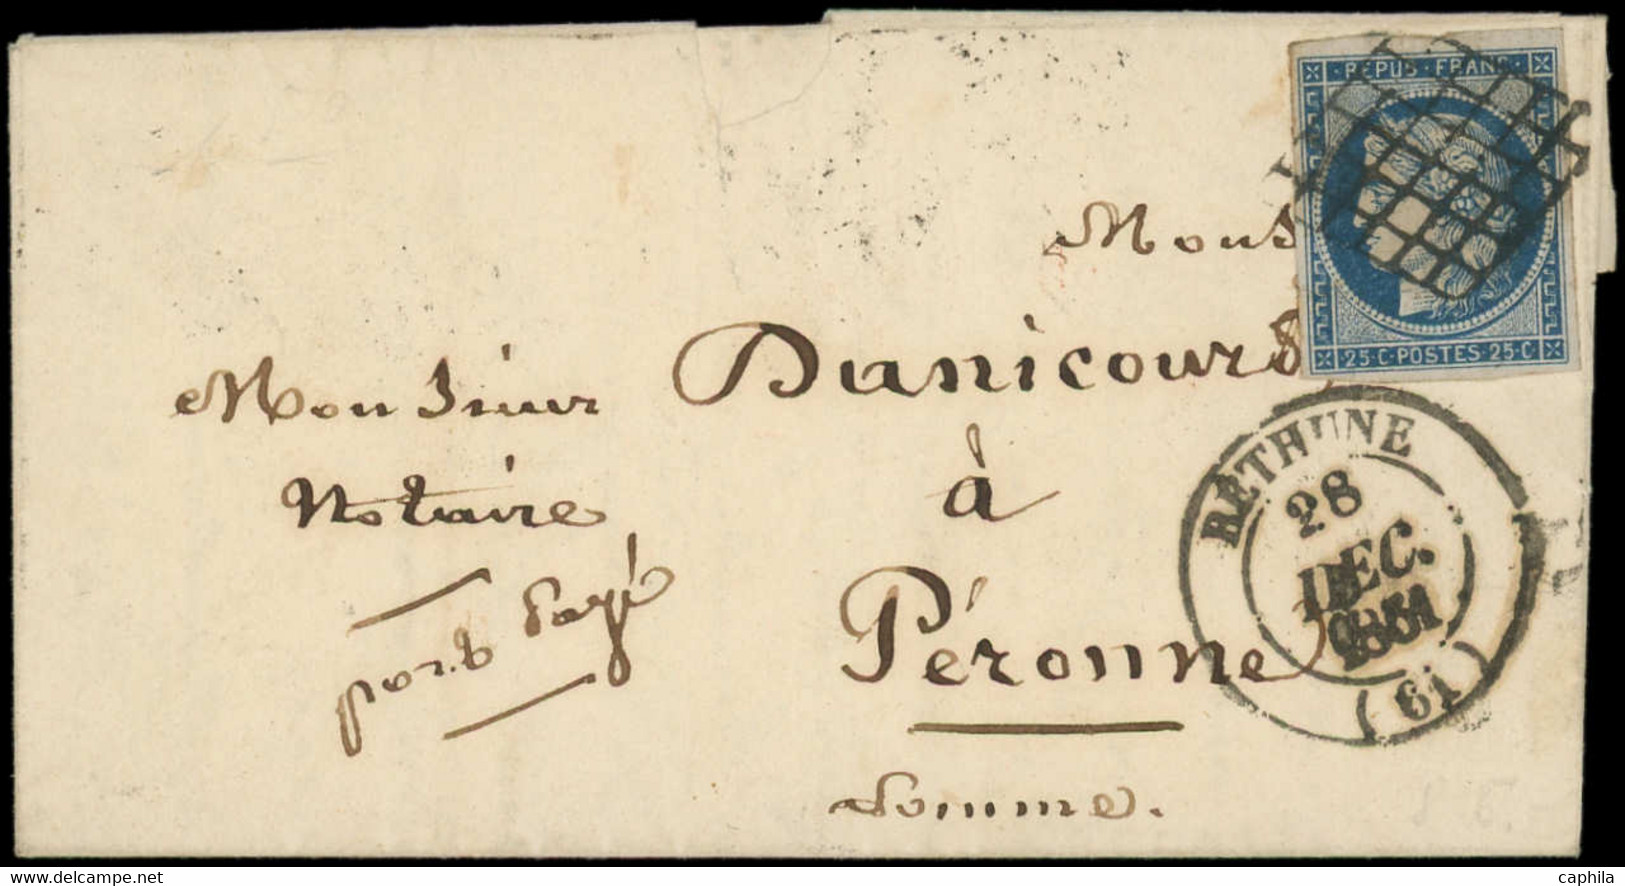 REPUB·FRANC·
25·C·POSTES·25·C
Mons
Monsieur Danicourt
Notaire
à
port payé
Péronne
Somme.
BETHUNE
28
DEC.
1851
(61)
www.delcampe.net
caphila